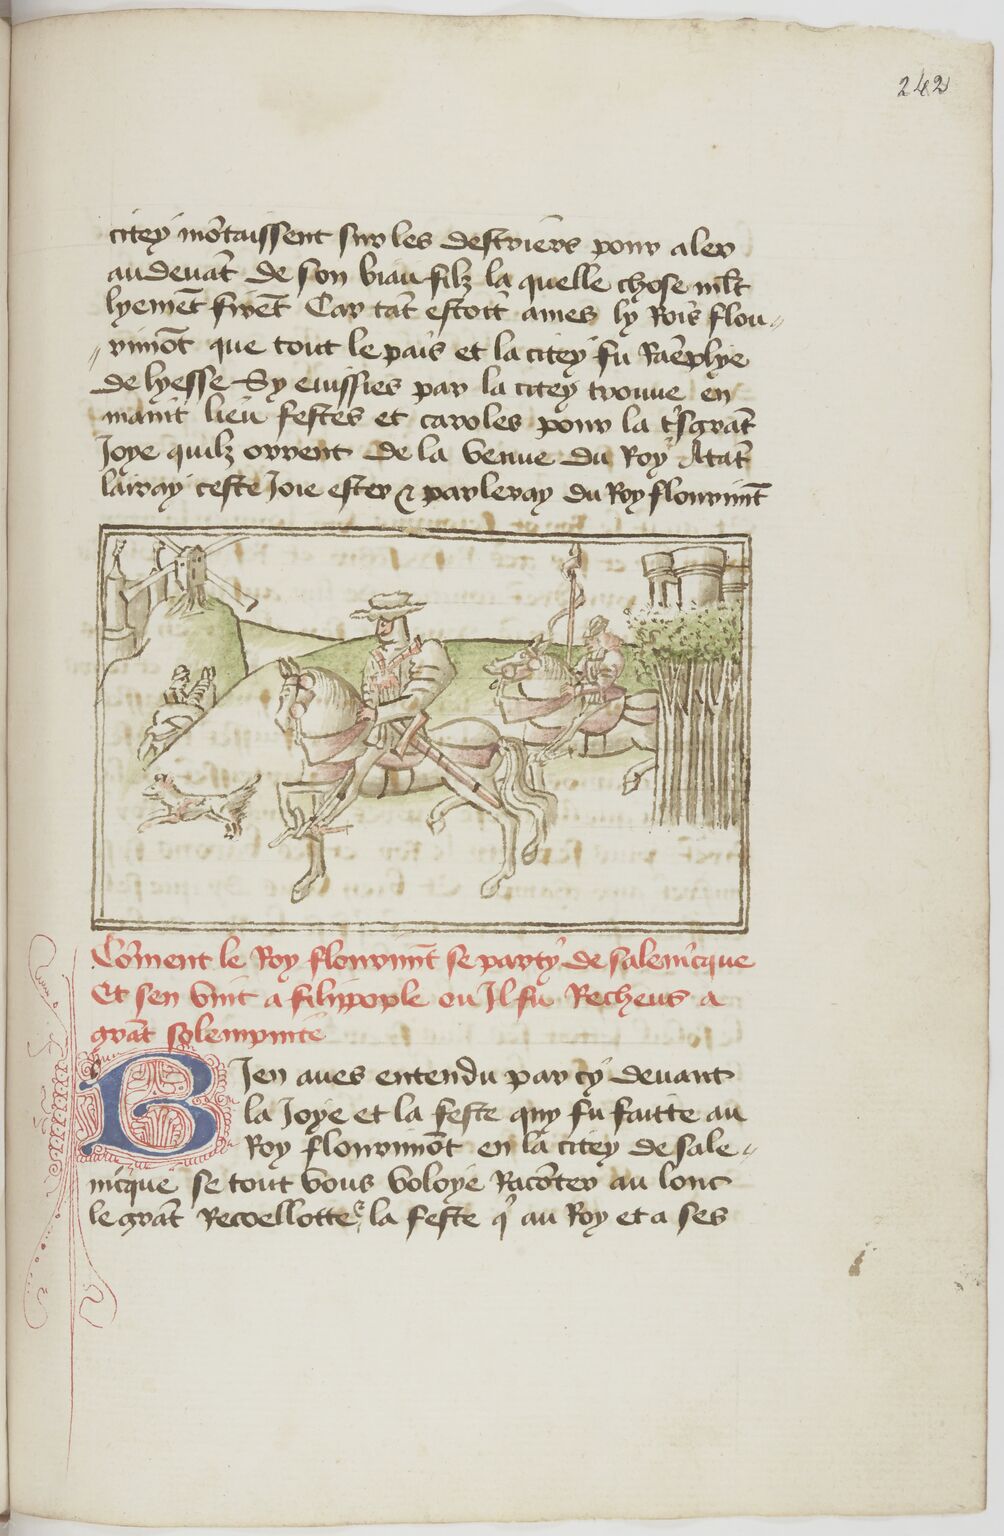 242
citey mōtaissent sur les destriers pour aler
audeuāt de son biau filz la quelle chose mlt
lyemēt firēt Car tāt estoit ames ly Rois flou-
rimōt que tout le pais et la citey fu Raēplye
de lyesse Sy euissies par la citey trouue en
maint lieu festes et caroles pour la t'sgrāt
Joye quilz orrent de la venue du Roy Atāt
lairay ceste Joie ester & parleray du Roy flourimt
Cōment le Roy flourimt se party de salenicque
Et sen vint a filipople ou Il fu Recheus a
grāt solempnite
BJen aues entendu par cy deuant
la Joye et la feste quy fu faitte au
Roy flourimōt en la citey de sale-
nicque se tout vous voloye Racōter au lonc
le grāt Recoellotte la feste q' au Roy et a ses